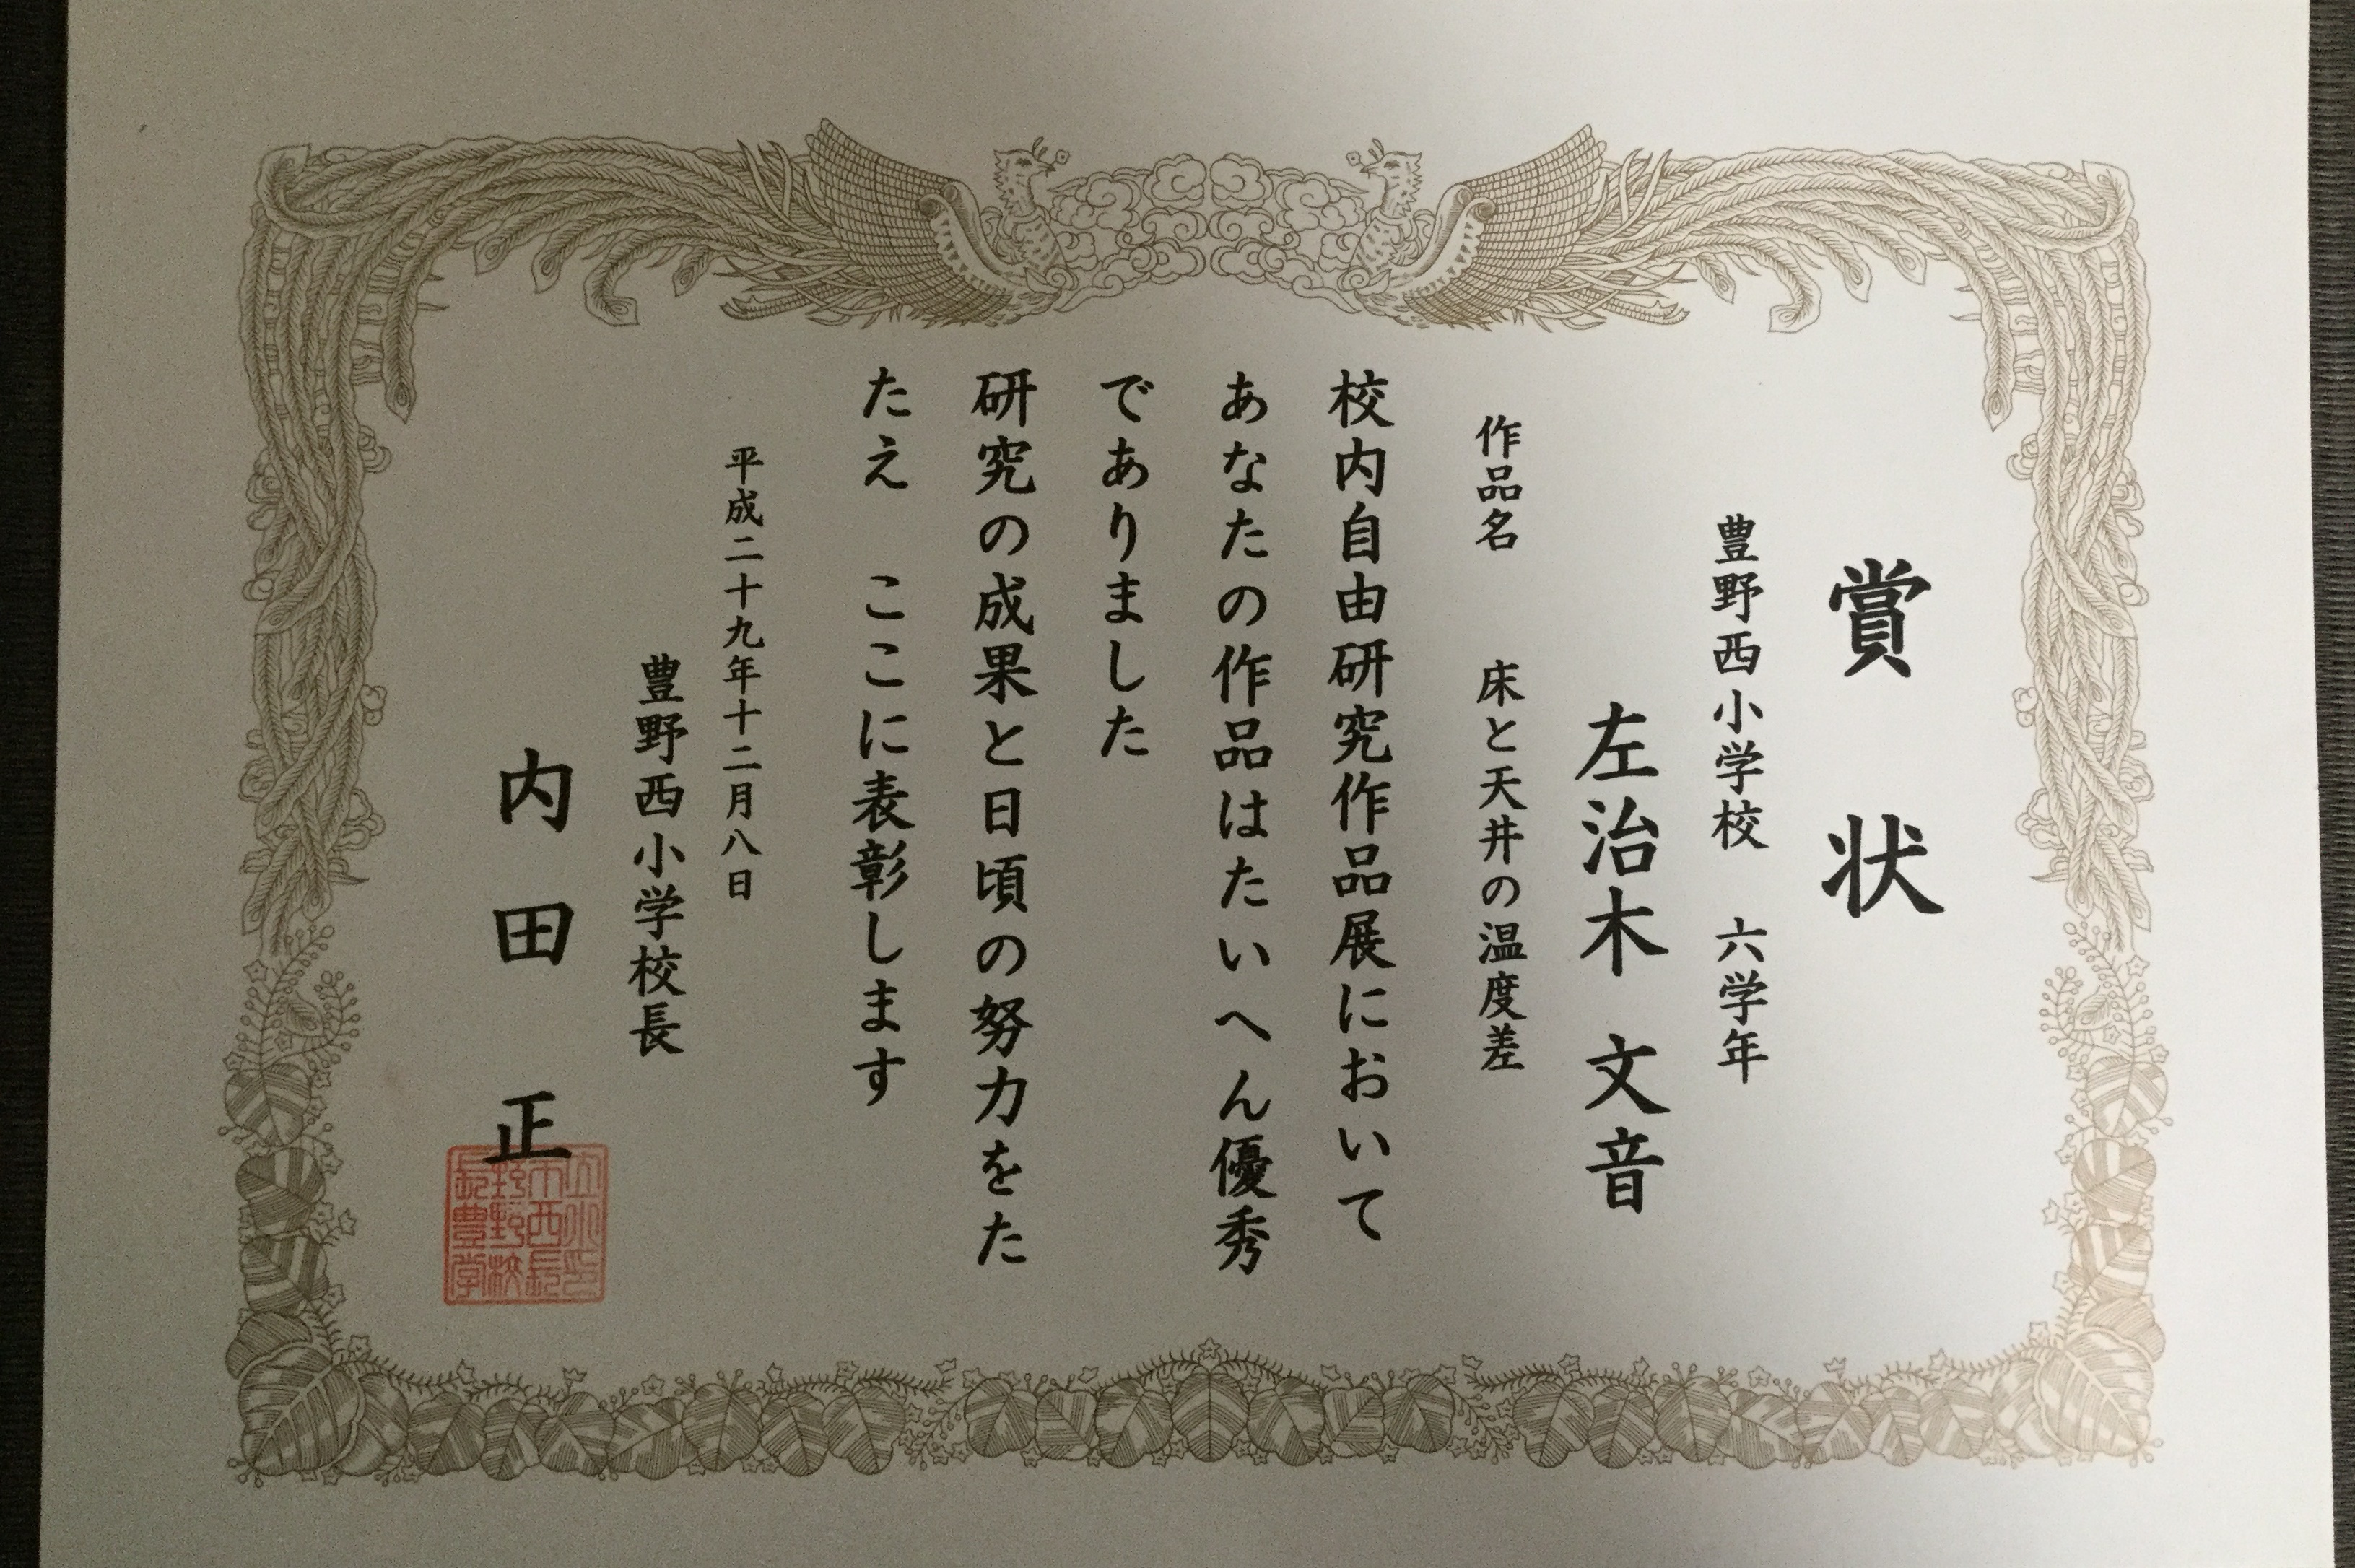 賞状
豊野西小学校 六学年
左治木 文音
作品名 床と天井の温度差
校内自由研究作品展において
あなたの作品はたいへん優秀
でありました
研究の成果と日頃の努力をた
たえ ここに表彰します
平成二十九年十二月八日
豊野西小学校長
内田 正